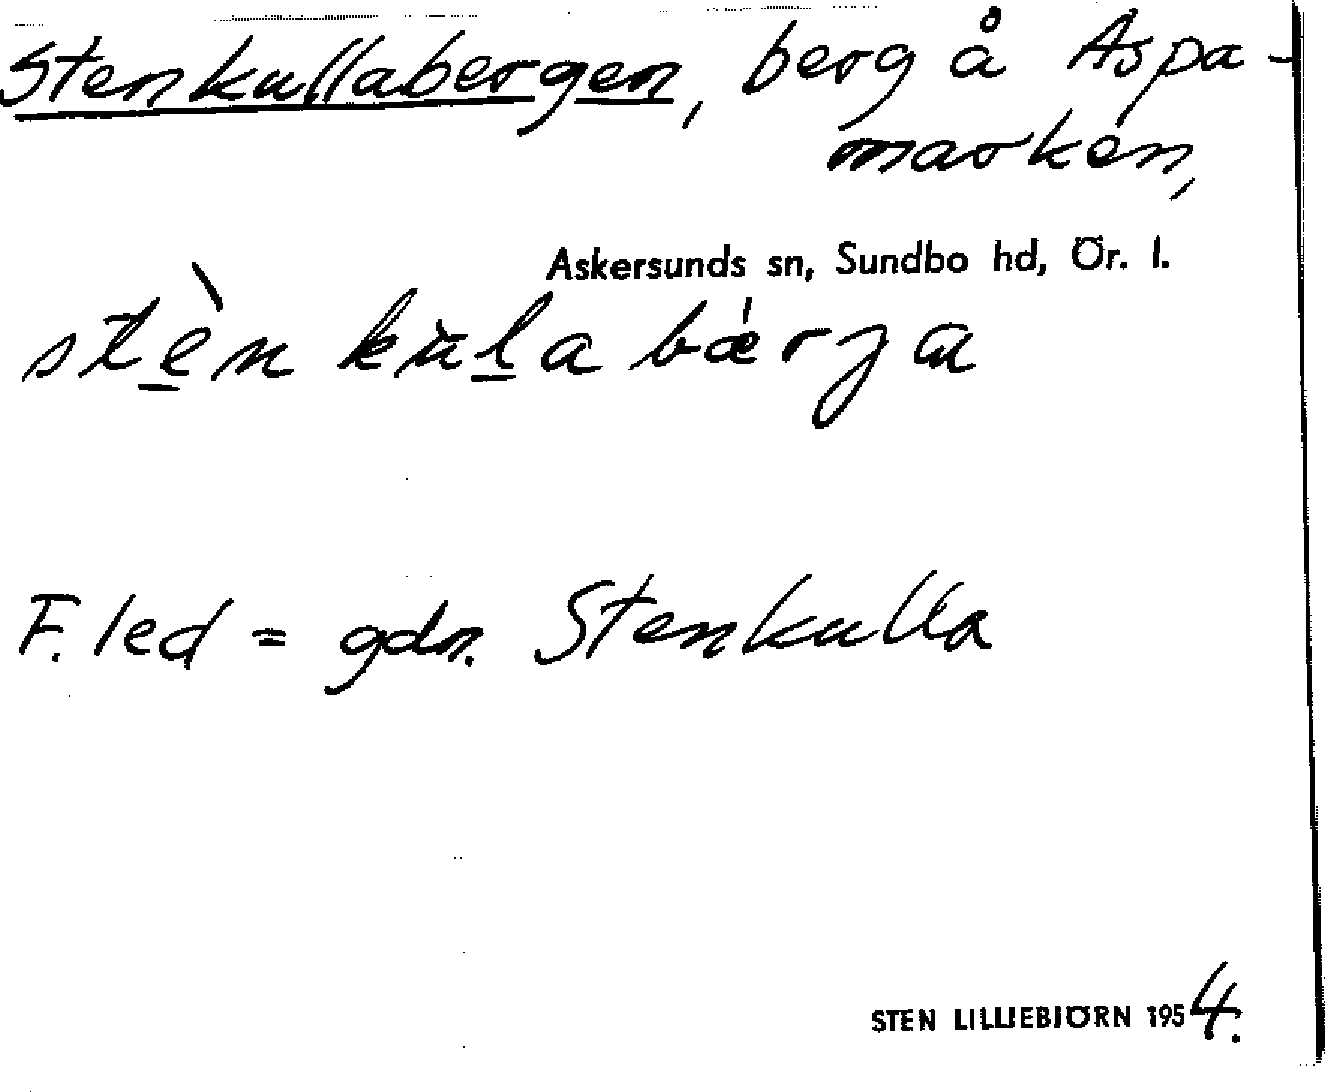 Stenkullabergen, berg å Aspa-
marken,
Askersunds sn, Sundbo hd, Ör. l.
stèn kula bǽrja
F. led = gdn. Stenkulla
STEN LILLIEBJÖRN 1954.